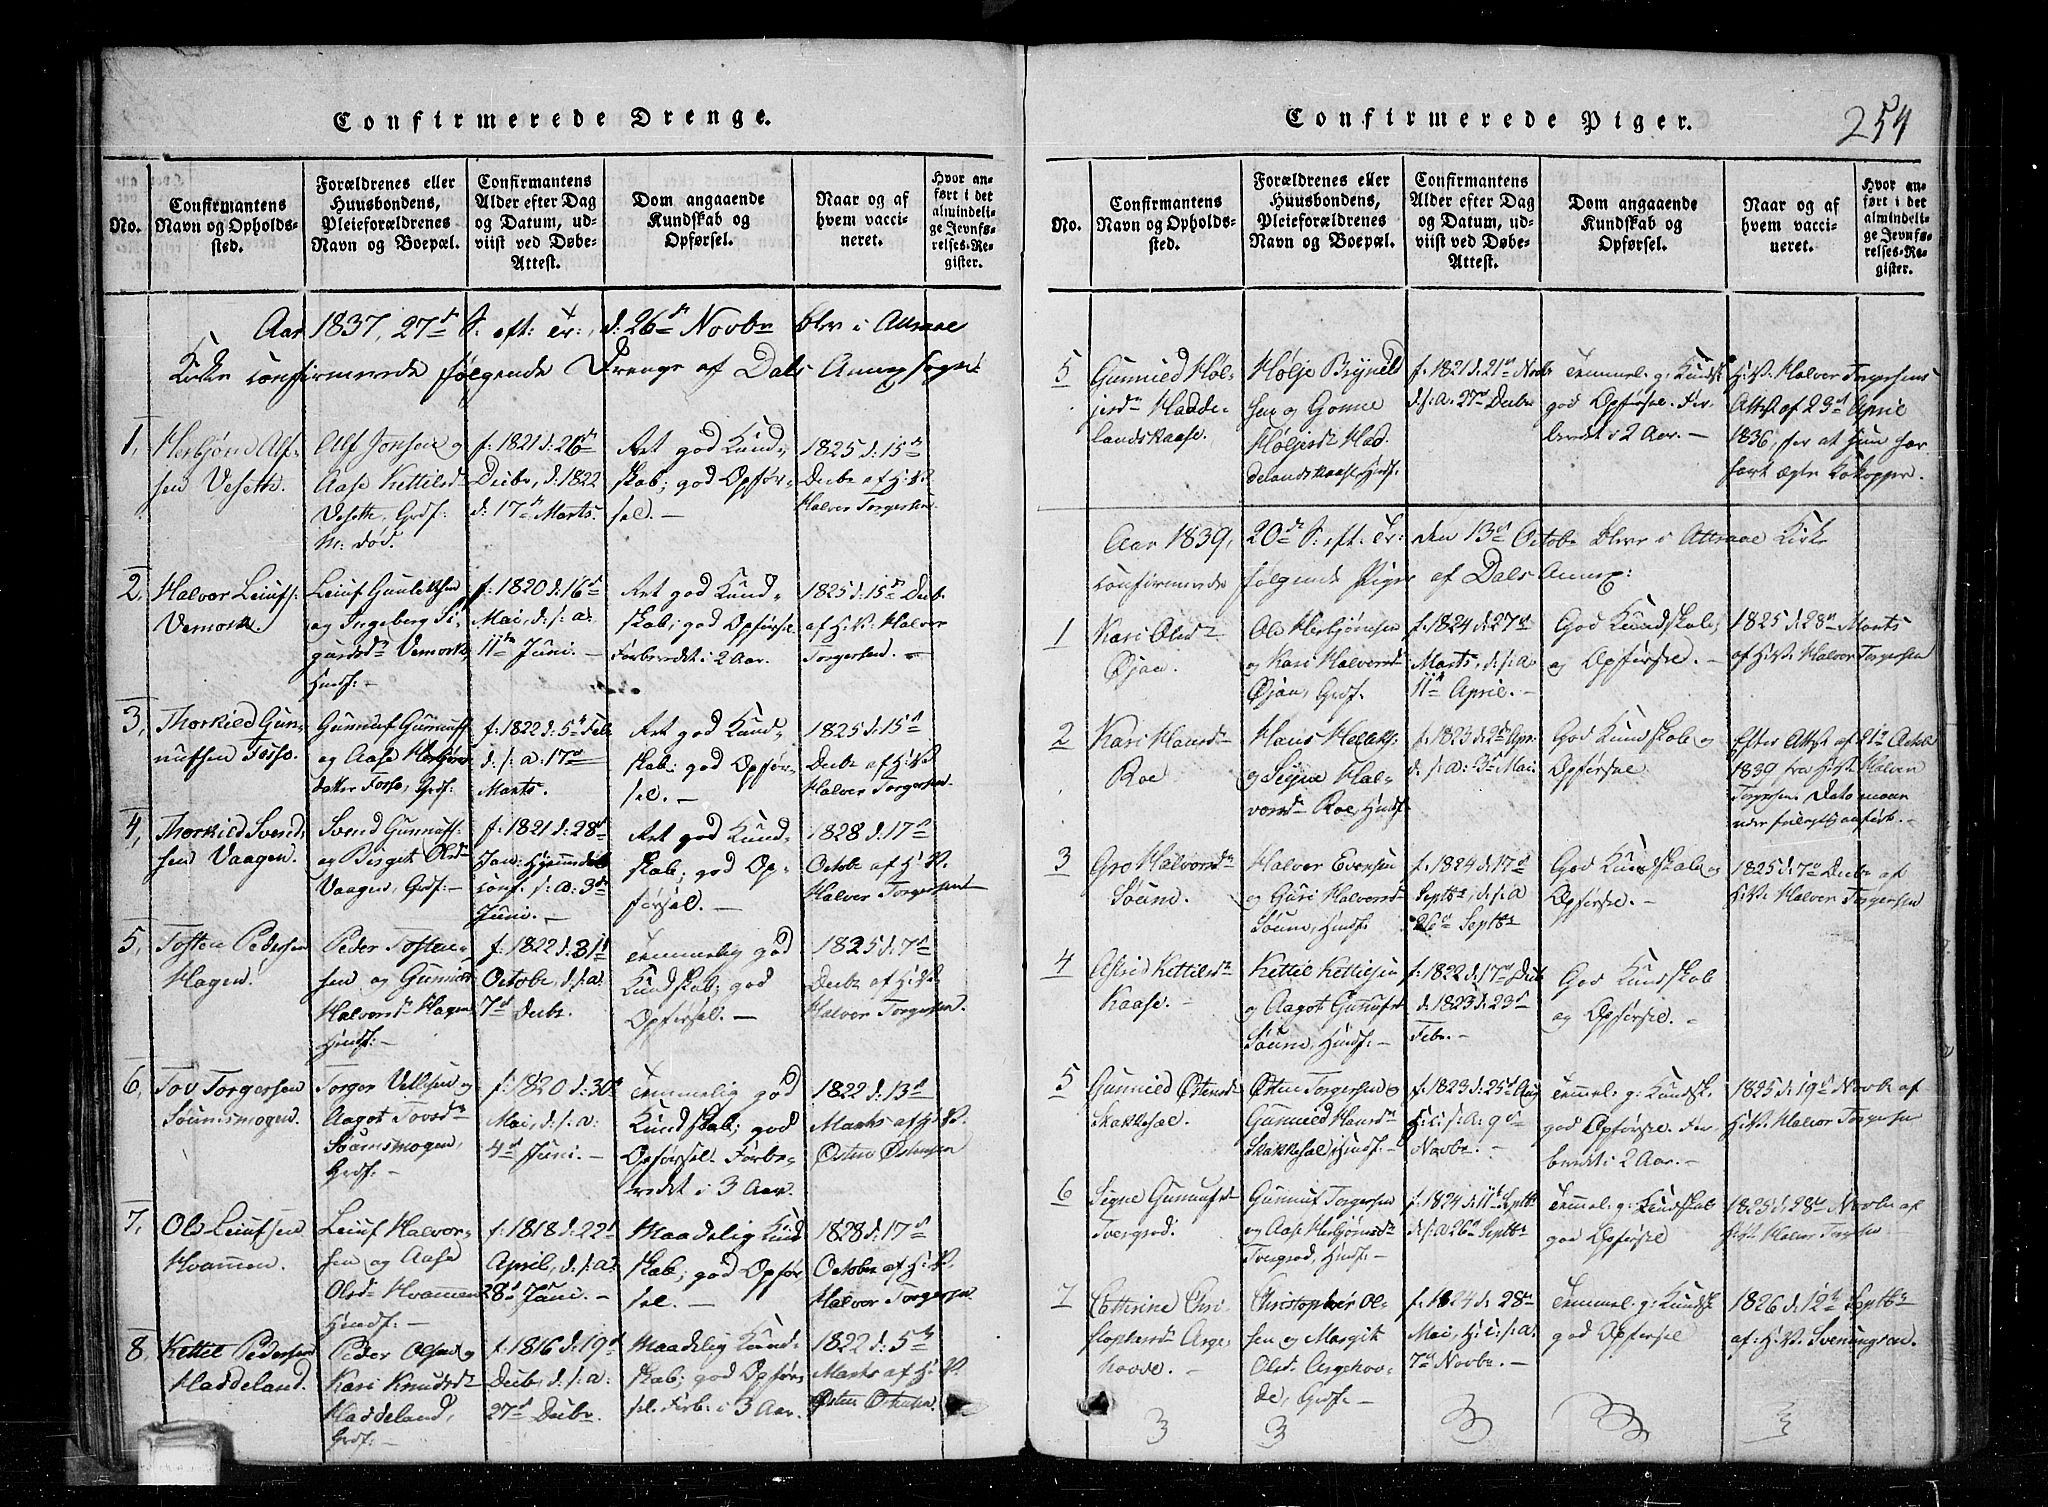 Confirmerede Drenge.
No.
Confirmantens
Navn og Opholds-
sted.
Forældrenes eller
Huusbondens,
Pleieforældrenes
Navn og Boepæl.
Confirmantens
Alder efter Dag
og Datum, ud-
viist ved Døbe-
Attest.
Dom angaaende
Kundskab og
Opførsel.
Naar og af
hvem vacci-
neret.
Hvor an-
ført i det
almindeli-
ge Jevnfø-
relses-Re-
gister.
Aar 1837, 27d S. eft: Tr:, d: 26d Novbr blev i Attraae
Kirke confirmerede følgende Drenge af Dals Annexsogn:
1,
Herbjørn Alf-
sen Veseth.
Alf Jonsen og
Aase Kettilsd
Veseth, Grdf:
M: død.
f: 1821 d: 26d
Decbr, d: 1822
d: 17d Marts.
Ret god Kund-
skab; god Opfør-
sel. -
1825 d: 15d
Decbr af H: V:
Halvor Torgersen
2,
Halvor Leiufs:
Vemork.
Leiuf Gunleksen
og Ingeberg Si-
gurdsdr Vemork,
Hmdf: -
f: 1820 d: 16d
Mai, d: s: a:
11te Juni. -
Ret god Kund-
skab; god Opførsel
Forberedet i 2 Aar.
1825 d: 15d Decbr
af H: V: Halvor
Torgersen. -
3,
Thorkild Gun-
nufsen Fosso.
Gunnuf Gunnufs:
og Aase Herbjørns
datter Fosso, Grdf:
f: 1822 d: 5te Feb:
d: s: a: 17d
Marts.
Ret god Kund-
skab; god Opfør-
sel. -
1825 d: 15d
Decbr af H: V:
Halvor Torgersen.
4,
Thorkild Svend-
sen Vaagen.
Svend Gunnufs:
og Birgit Olsdr
Vaagen, Grdf: -
f: 1821 d: 28d
Jan: Hjemmedøbt
conf: s: a: 3de
Juni. -
Ret god Kund-
skab; god Op-
førsel. -
1828 d: 17d
Octobr af H: V:
Halvor Torgersen
5,
Tosten Pedersen
Hagen.
Peder Tosten-
sen og Gunnild
Halvorsdr Hagen
Hmdf: -
f: 1822 d: 31d
Octobr, d: s: a:
7d Decbr.
Temmelig god
Kundskab; god
Opførsel. -
1825 d: 7d
Decbr af H: V:
Halvor Torgersen.
6,
Tov Torgersen
Søumsmogen.
Torger Vetlesen og
Aagot Tovsdr
Søumsmogen,
Grdf: -
f: 1820 d: 30d
Mai, d: s: a:
4d Juni. -
Temmelig god
Kundskab; god
Opførsel. Forbe-
redet i 3 Aar.
1822 d: 13d
Marts af H: V:
Østen Østensen
7,
Ole Leiufsen
Hvammen.
Leiuf Halvor-
sen og Aase
Olsdr Hvammen
Hmdf: -
f: 1818 d: 22d
April, d: s: a:
28d Juni. -
Maadelig Kund
skab; god Opfør
sel. -
1828 d: 17d
Octobr af H: V:
Halvor Torgersen.
8,
Kettil Pedersen
Haddeland.
Peder Olsen og
Kari Knudsdr
Haddeland,
Grdf: -
f: 1816 d: 19d
Decbr, d: s: a:
27d Decbr.
Maadelig Kund-
skab; god Opfør-
sel. Forb: i 3 Aar.
1822 d: 5te
Marts af H: V:
Østen Østensen.
Confirmerede Piger.
254
No.
Confirmantens
Navn og Opholds-
sted.
Forældrenes eller
Huusbondens,
Pleieforældrenes
Navn og Boepæl.
Confirmantens
Alder efter Dag
og Datum, ud-
viist ved Døbe-
Attest.
Dom angaaende
Kundskab og
Opførsel.
Naar og af
hvem vacci-
neret.
Hvor an-
ført i det
almindeli-
ge Jevnfø-
relses-Re-
gister.
5
Gunnild Høl-
jesdr Hadde-
landskaase.
Hølje Bryneld
sen og Gonne
Høljesdr Had
delandskaase Hmdf:
f: 1821 d: 21d Novbr
d: s: a: 27d Decbr
Temmel: g: Kundsk
god Opførsel. For-
beredt i 2 Aar. -
H: V: Halvor Torgersens
Attest af 23d April
1836, for at hun har
havt ægte Kokopper.
Aar 1839, 20de S: eft: Tr: den 13d Octobr blev i Attraae Kirke
confirmerede følgende Piger af Dals Annex:
1
Kari Olsdr
Øjan.
Ole Herbjørnsen
og Kari Halvorsd
Øjan, Grdf.
f: 1824 d: 27d
Marts, d: s: a
11te April. -
God Kundskab;
og Opførsel. -
1825 d: 28d Marts
af H: V: Halvor Torgersen
2
Kari Hansdr
Roe
Hans Helleks:
og Signe Hal-
vorsdr Roe, Hmdf.
f: 1823 d: 2d Apr.
d: s: a: 3d Mai.
God Kundskab og
Opførsel.
Efter Attest af 21de Octbr
1839 fra H: V: Halvor
Torgersen. Dato maan
3
Gro Halvorsdr
Søum.
Halvor Evensen
og Guri Halvorsd
Søum, Hmdf.
f: 1824 d: 17d
Septbr, d: s: a
26d Septbr
God Kundskab og
Opførsel. -
1825 d: 7d Decbr af
H: V: Halvor Torgersen
4
Astrid Kettilsdr
Kaase. -
Kettil Kettilsen
og Aagot Gunnufsd
Søum, Hmdf: -
f: 1822 d: 17d Decbr
d. 1823 d: 23d
Febr. -
God Kundskab
og Opførsel. -
5
Gunnild Østensdr
Skakkesæl.
Østen Torgersen og
Gunnild Hansdr
Skakkesæl, Hmdf: -
f: 1823 d: 25d Aug
H: c: s: a: 9de
Novbr. -
Temmel: g: Kundsk.
god Opførsel. For-
beredt i 2 Aar. -
1825 d: 19d Novbr af
H: V: Halvor Torgersen
6
Signe Gunnufsd
Tvergrod.
Gunnuf Torgersen
og Aase Herbjørnsdr
Tvergrod, Hmdf: -
f: 1824 d: 11d Septbr
d: s: a 26d Septbr
Temmel: g: Kundskab
god Opførsel
1825 d: 28de Novbr af
H: V: Halvor Torgersen -
7
Catherine Chri-
stophersdr Arge-
hovde.
Christopher Ol-
sen og Margit
Olsdr Argehov-
de, Grdf. -
f: 1824 d: 28d
Mai, H: c: s: a:
7d Novbr. -
Temmel: g: Kundsk
god Opførsel
1826 d: 12te Septbr
af: H: V: Svenungsen.